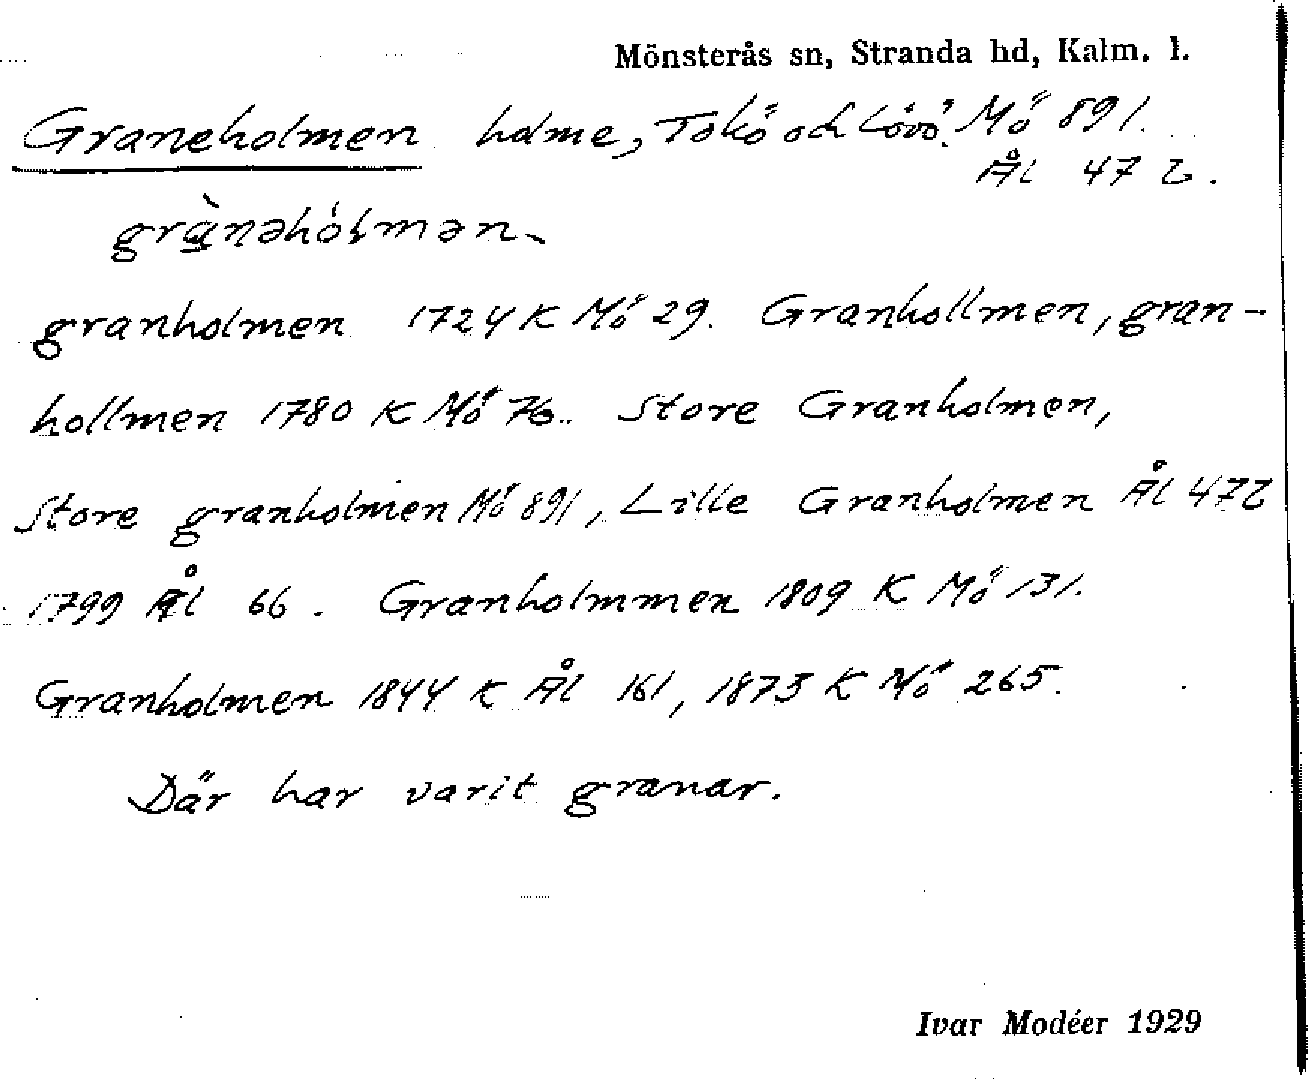 Mönsterås sn, Stranda hd, Kalm. l.
Graneholmen holme, Tokö och Lövö. Mö 891.
Ål 472.
grànəhólmən
granholmen 1724 K Mö 29. Granhollmen, gran-
hollmen 1780 K Mö 76. Store Granholmen,
Store granholmen Mö 891, Lille Granholmen Ål 472
1799 Ål 66. Granholmmen 1809 K Mö 131.
Granholmen 1844 K Ål 161, 1873 K Mö 265.
Där har varit granar.
Ivar Modéer 1929